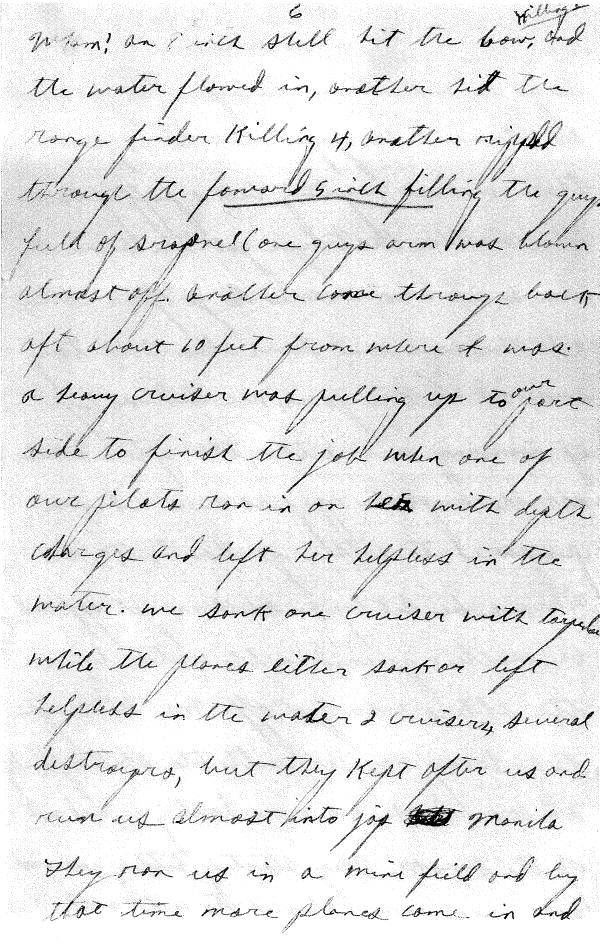 6
killings
Wham! an 8 inch shell hit the bow, and
the water flowed in, another hit the
range finder killing 4, another ripped
through the forward 5 inch filling the guys
full of srapnel (one guys arm was blown
almost off. another come through back
aft about 10 feet from where I was.
a heavy cruiser was pulling up to our port
side to finish the job when one of
our pilots ran in on her with depth
charges and left her helpless in the
water. we sank one cruiser with torpedoes
while the planes either sank or left
helpless in the water 2 cruisers, several
destroyers, but they kept after us and
run us almost into jap Manila
They ran us in a mine field and by
that time more planes come in and